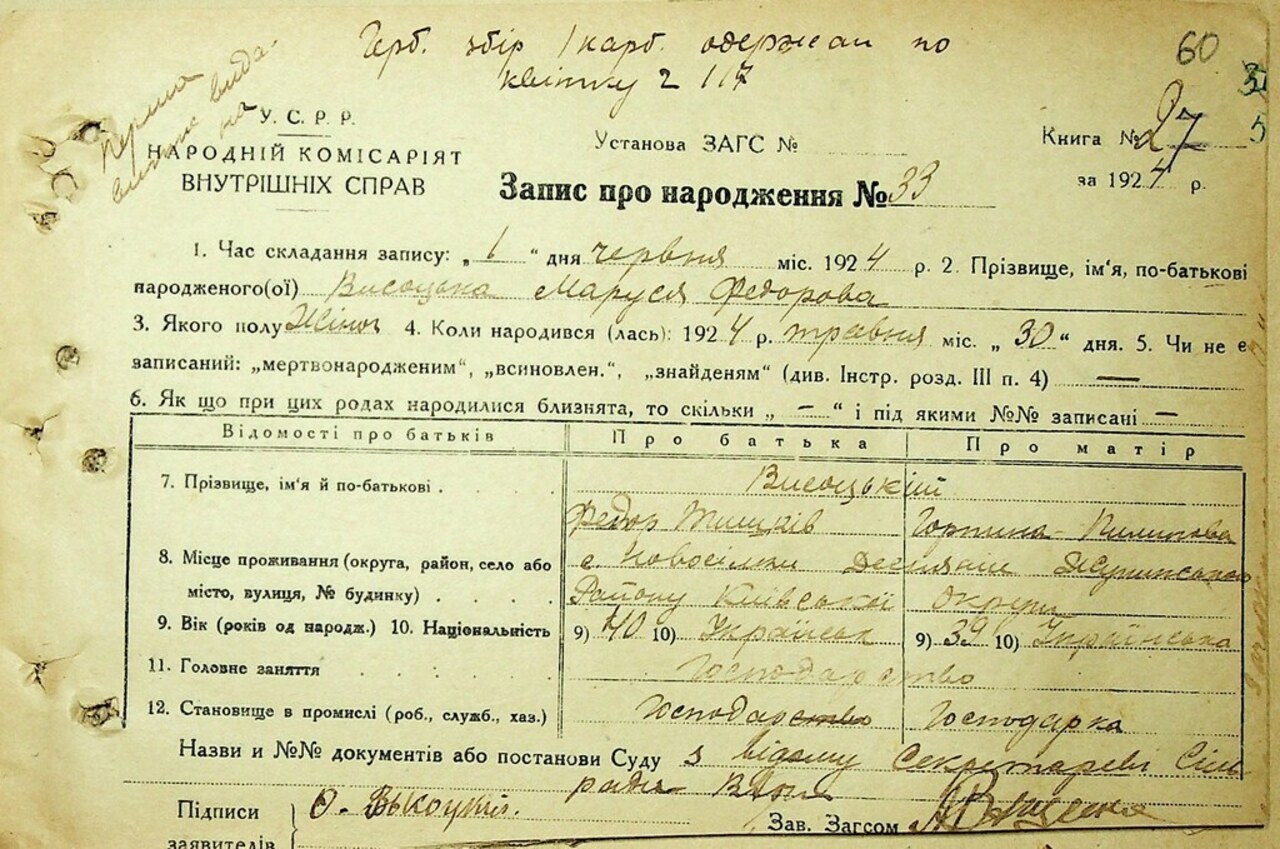 Герб. збір 1 карб. одержан по
квітку 2 117
60
Перша
виписк вида
на
У. С. Р. Р.
НАРОДНІЙ КОМІСАРІЯТ
ВНУТРІШНІХ СПРАВ
Установа ЗАГС №
Книга № 27
5
за 1924 р.
Запис про народження № 33
1. Час складання запису: „1“ дня червня міс. 1924 р. 2. Прізвище, ім'я, по-батькові
народженого(ої) Висоцька Маруся Федорова
3. Якого полу Жіноч 4. Коли народився (лась): 1924 р. травня міс. „30“ дня. 5. Чи не є
записаний: „мертвонародженим“, „всиновлен.“, „знайденям“ (див. Інстр. розд. III п. 4) —
6. Як що при цих родах народилися близнята, то скільки „ — “ і під якими №№ записані —
Відомості про батьків Про батька Про матір
7. Прізвище, ім'я й по-батькові . . . . Висоцький
Федор Тишків Горпина Пилипова
8. Місце проживання (округа, район, село або с. Новосілки
місто, вулиця, № будинку) . . . . Району Київської округи
9. Вік (років од народж.) 10. Національність 9) 40 10) Українськ 9) 39 10) Українська
11. Головне заняття . . . . Господарство
12. Становище в промислі (роб., служб., хаз.) Господарство Господарка
Назви и №№ документів або постанови Суду з відому Секретареві Сіль
ради
Підписи О. Высоцкий.
Зав. Загсом
заявителів